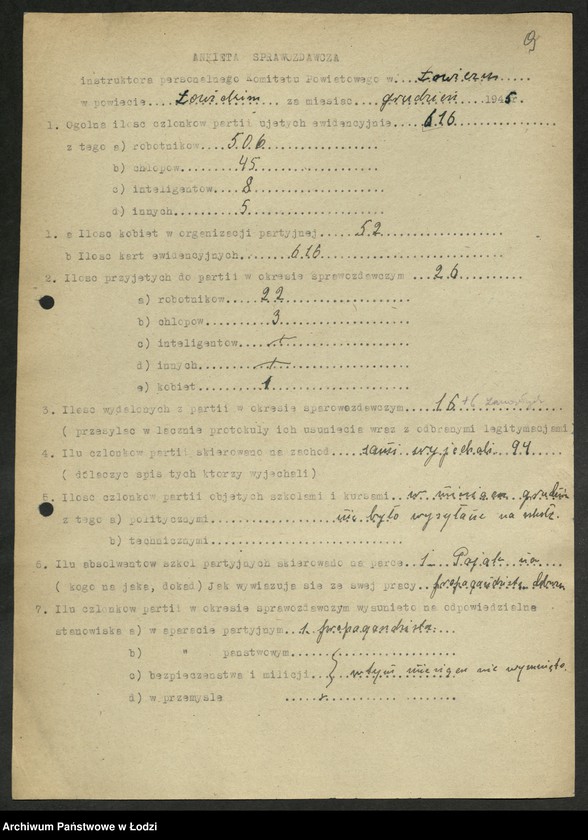 9
ANKIETA SPRAWOZDAWCZA
instruktora personalnego Komitetu Powiatowego w....Łowiczu.....
w powiecie....Łowickim.... za miesiac....grudzień....1945r.
1. Ogolna ilosc czlonkow partii ujetych ewidencyjnie.....616..............
z tego a) robotnikow....506.................
b) chlopow.....45..................
c) inteligentow....8...................
d) innych..........5...................
1. a Ilosc kobiet w organizacji partyjnej......52.................
b Ilosc kart ewidencyjnych........616..........................
2. Ilosc przyjetych do partii w okresie sprawozdawczym ...26..........
a) robotnikow....22...................
b) chlopow..........3...................
c) inteligentow.........................
d) innych...............................
e) kobiet..........1....................
3. Ilosc wydalonych z partii w okresie sparowozdawczym....16 +6
( przesylac w lacznie protokuly ich usuniecia wraz z odbranymi legitymacjami)
4. Ilu czlonkow partii skierowano na zachod.....sami wyjechali 94
(dolaczyc spis tych ktorzy wyjechali)
5. Ilosc czlonkow partii objetych szkolami i kursami...w miesiącu grudniu
z tego a) politycznymi................nie było wysyłane na szkołę.
b) technicznymi.........................
6. Ilu absolwentow szkol partyjnych skierowano na parce...1 –
( kogo na jaka, dokad) Jak wywiazuja sie ze swej pracy..propagandista
7. Ilu czlonkow partii w okresie sprawozdawczym wysunieto na odpowiedzialne
stanowiska a) w aparacie partyjnym..1. propagandista....
b) " panstwowym.........................
c) bezpieczenstwa i milicji...w tym miesiącu nie wysunięto.
d) w przemysle .........................
Archiwum Państwowe w Łodzi